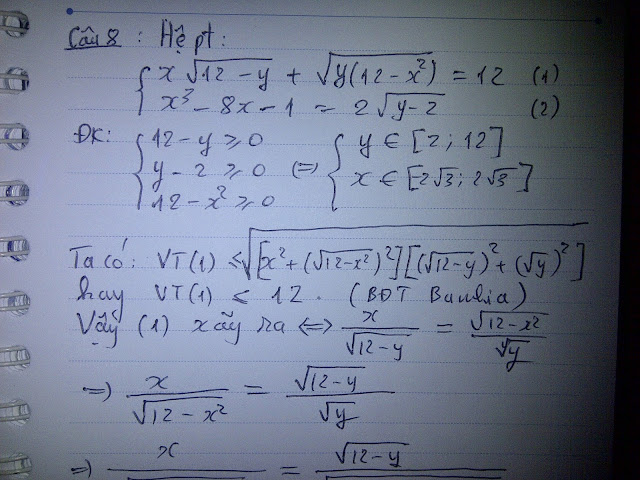 Câu 8 : Hệ pt:
{ x√(12 - y) + √(y(12 - x²)) = 12 (1)
x³ - 8x - 1 = 2√(y - 2) (2)
ĐK: { 12 - y ≥ 0
y - 2 ≥ 0
12 - x² ≥ 0
(=) { y ∈ [2; 12]
x ∈ [2√3; 2√3]
Ta có: VT(1) ≤ √([x² + (√(12 - x²))²][(√(12 - y))² + (√y)²])
hay VT(1) ≤ 12. (BĐT Bunhia)
Vậy (1) xãy ra ⇔ x/√(12 - y) = √(12 - x²)/√y
=) x/√(12 - x²) = √(12 - y)/√y
=) x = √(12 - y)